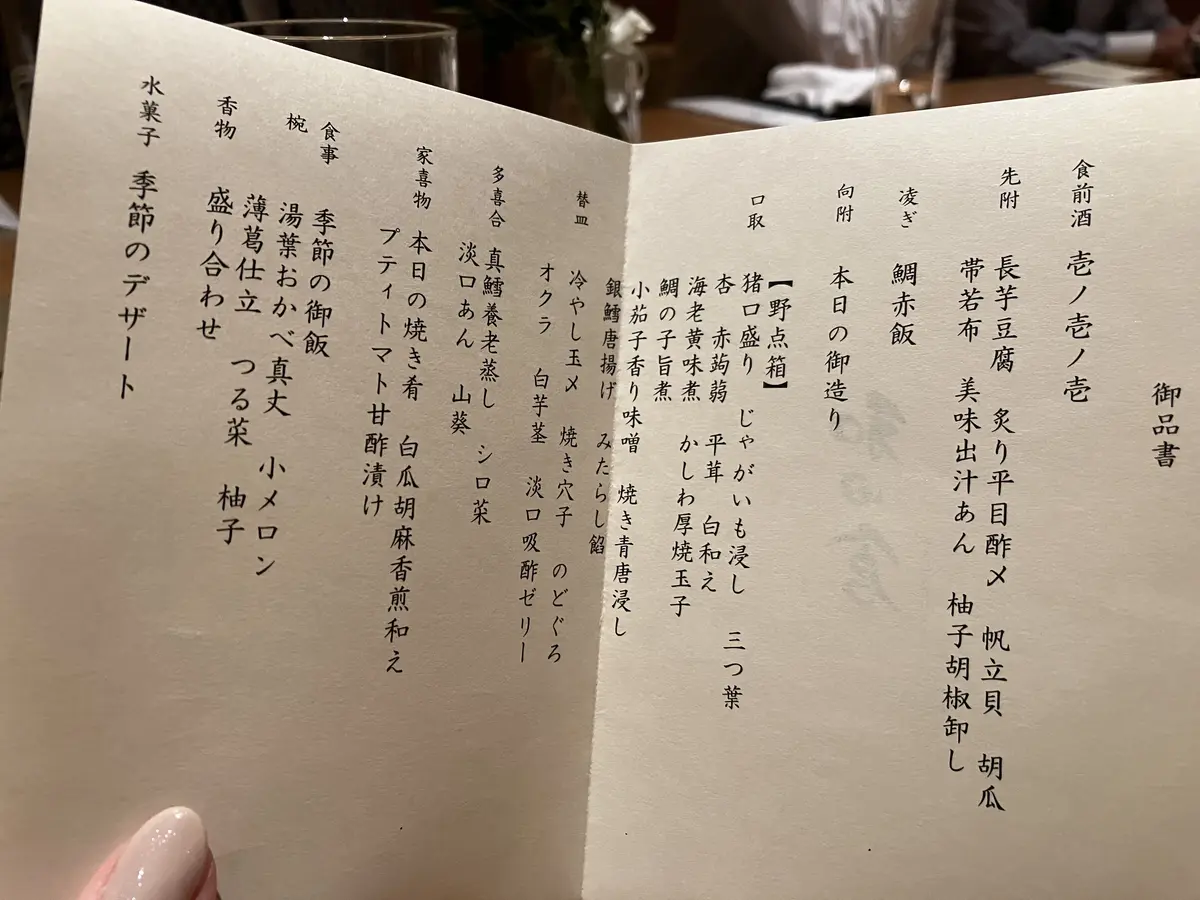 御品書
食前酒 壱ノ壱ノ壱
先附 長芋豆腐 炙り平目酢〆 帆立貝 胡瓜
帯若布 美味出汁あん 柚子胡椒卸し
凌ぎ 鯛赤飯
向附 本日の御造り
口取 【野点箱】
猪口盛り じゃがいも浸し 三つ葉
杏 赤蒟蒻 平茸 白和え
海老黄味煮 かしわ厚焼玉子
鯛の子旨煮
小茄子香り味噌 焼き青唐浸し
銀鱈唐揚げ みたらし餡
替皿 冷やし玉〆 焼き穴子 のどぐろ
オクラ 白芋茎 淡口吸酢ゼリー
多喜合 真鱈養老蒸し シロ菜
淡口あん 山葵
家喜物 本日の焼き肴 白瓜胡麻香煎和え
プティトマト甘酢漬け
食事 季節の御飯
椀 湯葉おかべ真丈 小メロン
薄葛仕立 つる菜 柚子
香物 盛り合わせ
水菓子 季節のデザート